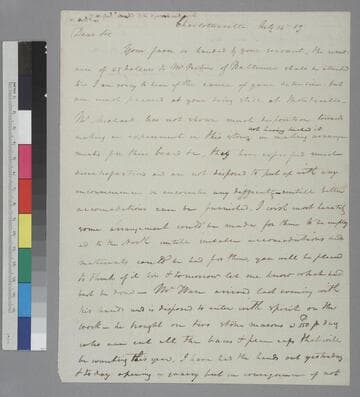 Charlottesville July 12th 19
Dear Sir
Your favor is handed by your servant, the remit
ance of dollars to Mr of Baltimore shall be attended
to. I am sorry to hear of the cause of your detention but
am much pleased at your being still at Monticello
Mr has not shown much disposition towards
making an experiment on this stone, not having tasked it
in making arrange
ments for their board &c, they have expressed much
disappointment and are not disposed to put up with any
inconvenience or encounter any difficulty untill better
accomodations can be furnished. I wish most heartily
some arrangement could be made for them to be employ
ed at the work untill suitable accomodations and
materials could be had for them, you will be pleased
to think of it Sir & tomorrow let me know what had
best be done — Mr Ware arrived last evening with
his hands and is disposed to enter with spirit on the
work — he brought on two stone masons @ 150 p day
who can cut all the bases & plain caps that will
be wanting this year. I have had the hands out yesterday
& to day opening a quarry but in consequence of not